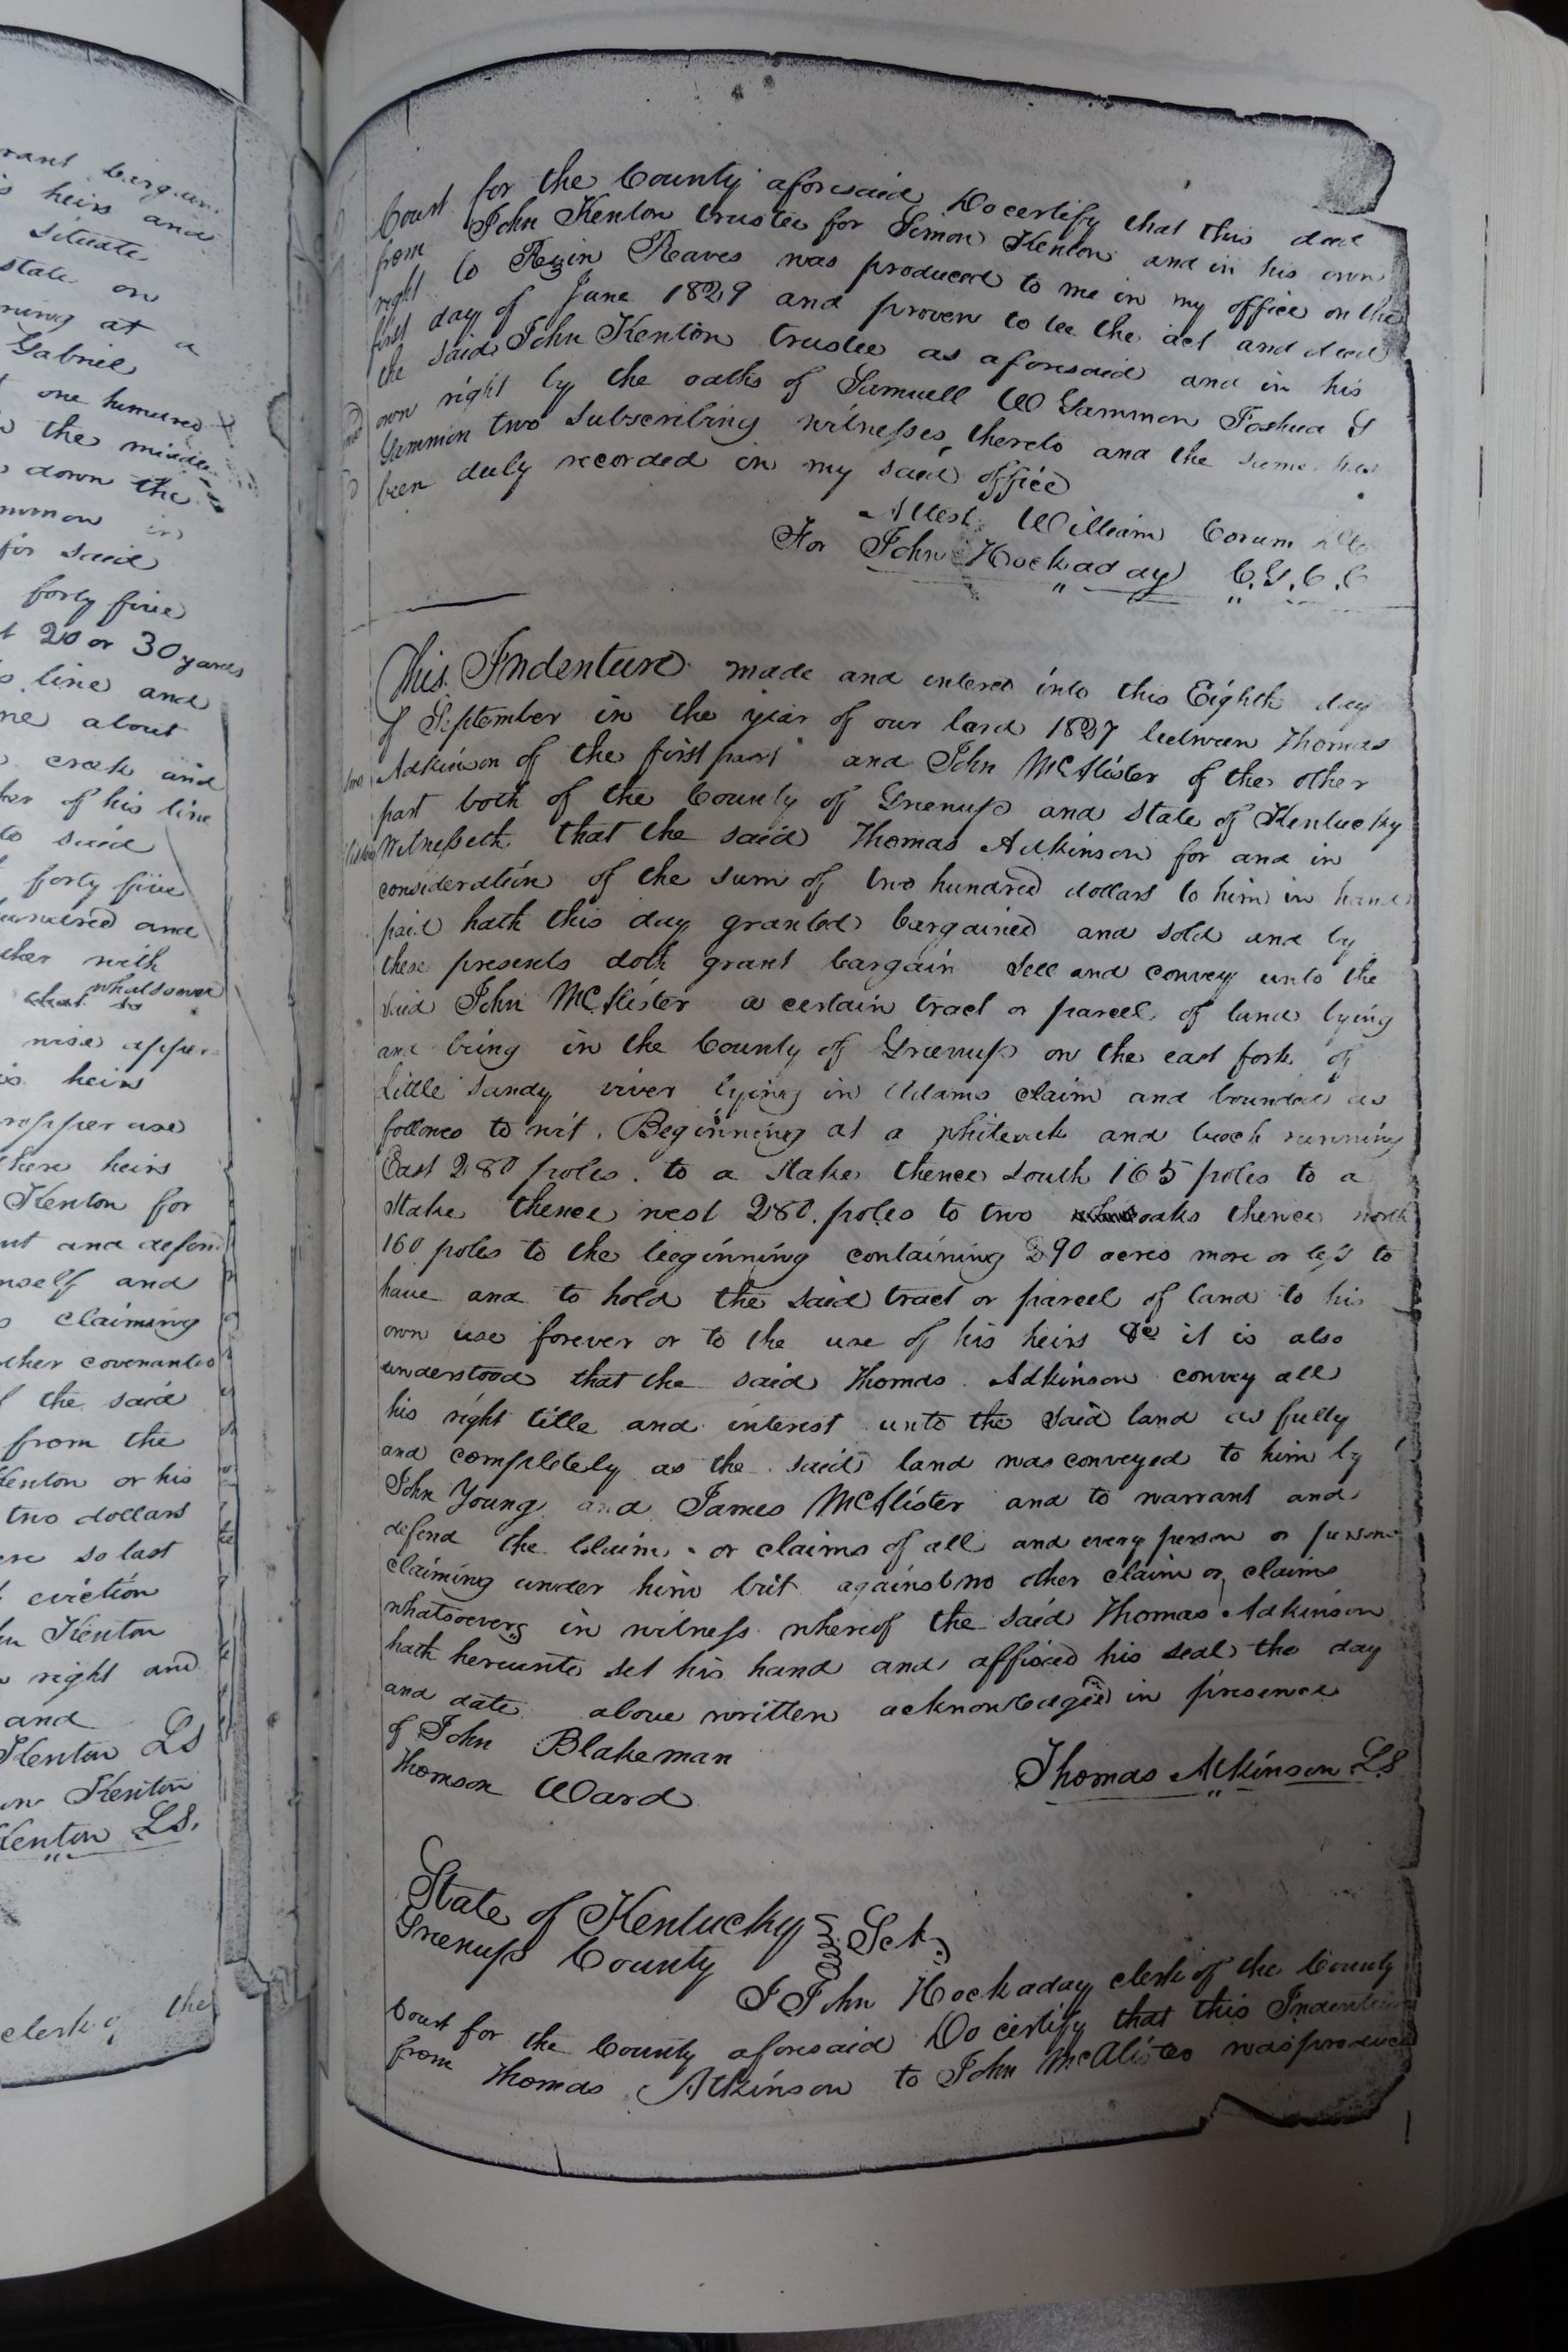 rant bargain
s heirs and
situate
state on
ning at a
Gabriel
one hundred
the middle
down the
mmon in
for said
forty five
t 20 or 30 yards
s line and
ne about
creek and
ner of his line
to said
forty five
hundred and
ther with
whatsoever
nise apper
is heirs
propper use
there heirs
Kenton for
nt and defend
nself and
s claiming
ther covenants
f the said
from the
Kenton or his
two dollars
ere so last
eviction
hn Kenton
n right and
and
Kenton LS
on Kenton
Kenton LS.
clerk of the
Court for the County aforesaid Do certify that this deed
from John Kenton trustee for Simon Kenton and in his own
right to Rezin Reaves was produced to me in my office on the
first day of June 1829 and proven to be the act and deed
the said John Kenton trustee as aforesaid and in his
own right by the oaths of Samuell W Gammon Joshua G
Gammon two subscribing witnesses thereto and the same has
been duly recorded in my said office
Attest William Corum
For John Hockaday C.G.C.C
This Indenture made and entered into this Eighth day
of September in the year of our lard 1827 between Thomas
Adkinson of the first part and John McAlister of the other
part both of the County of Greenup and State of Kentucky
Witnesseth that the said Thomas Adkinson for and in
consideration of the sum of two hundred dollars to him in hand
paid hath this day granted bargained and sold and by
these presents doth grant bargain sell and convey unto the
said John McAlister a certain tract or parcel of land lying
and being in the County of Greenup on the east fork of
little sandy river lying in Adams claim and bounded as
follows to wit. Beginning at a whiteoak and beech running
East 280 poles. to a stake thence south 165 poles to a
stake thence west 280. poles to two oaks thence north
160 poles to the beeginning containing 290 acres more or less to
have and to hold the said tract or parcel of land to his
own use forever or to the use of his heirs &c it is also
understood that the said Thomas Adkinson convey all
his right title and interest unto the said land as fully
and completely as the said land was conveyed to him by
John Young and James McAlister and to warrant and
defend the Claim or claims of all and every person or persons
claiming under him but against no other claim or claims
whatsoever in witness whereof the said Thomas Adkinson
hath hereunto set his hand and affixed his seal the day
and date above written acknowledged in presence
of John Blakeman
Thomson Ward
Thomas Atkinson LS
State of Kentucky
Greenup County Sct.
I John Hockaday clerk of the County
Court for the County aforesaid Do certify that this Indenture
from Thomas Atkinson to John McAlister was produced